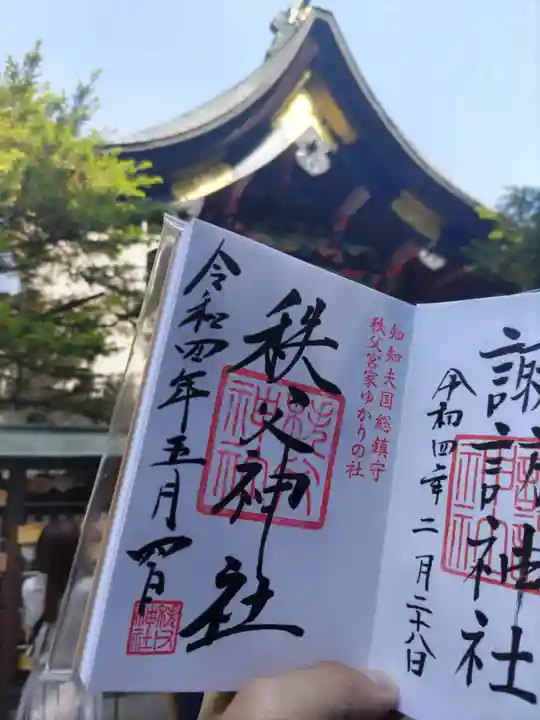 謝訪神社
令和四年二月二十八日
知知夫国総鎮守
秩父宮家ゆかりの社
秩父神社
令和四年五月四日
秩父
神社